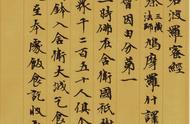 若波羅蜜經
三藏法師鳩摩羅什譯
會因由分第一
一時佛在舍衛國祇
衆千二百五十人俱
鉢入舍衛大城乞食
至本處飯食訖收